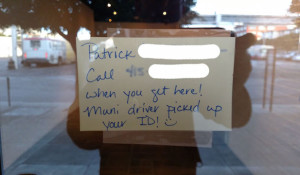 Patrick
Call 415
when you get here!
Muni driver picked up
your ID!